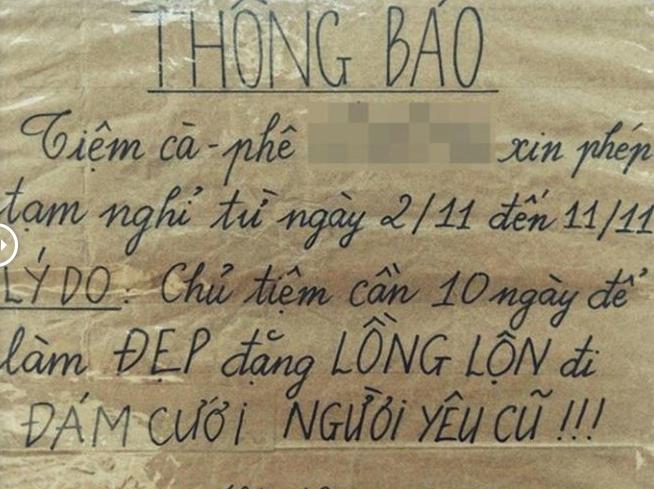 THÔNG BÁO
Tiệm cà-phê xin phép
tạm nghỉ từ ngày 2/11 đến 11/11
LÝ DO: Chủ tiệm cần 10 ngày để
làm ĐẸP đặng LỒNG LỘN đi
ĐÁM CƯỚI NGƯỜI YÊU CŨ!!!